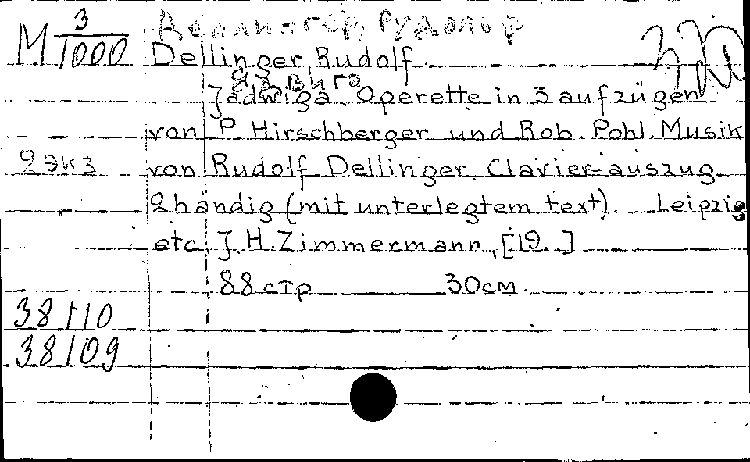 М 3/1000 Деллингер, Рудольф
Dellinger, Rudolf
Ядвига
Jadwiga. Operette in 3 aufzügen
von P. Hirschberger und Rob. Pohl. Musik
2 экз von Rudolf Dellinger. Clavier-auszug
2händig (mit unterlegtem text). Leipzig
etc. J. H. Zimmermann, [19..]
88 стр 30см.
38110
38109